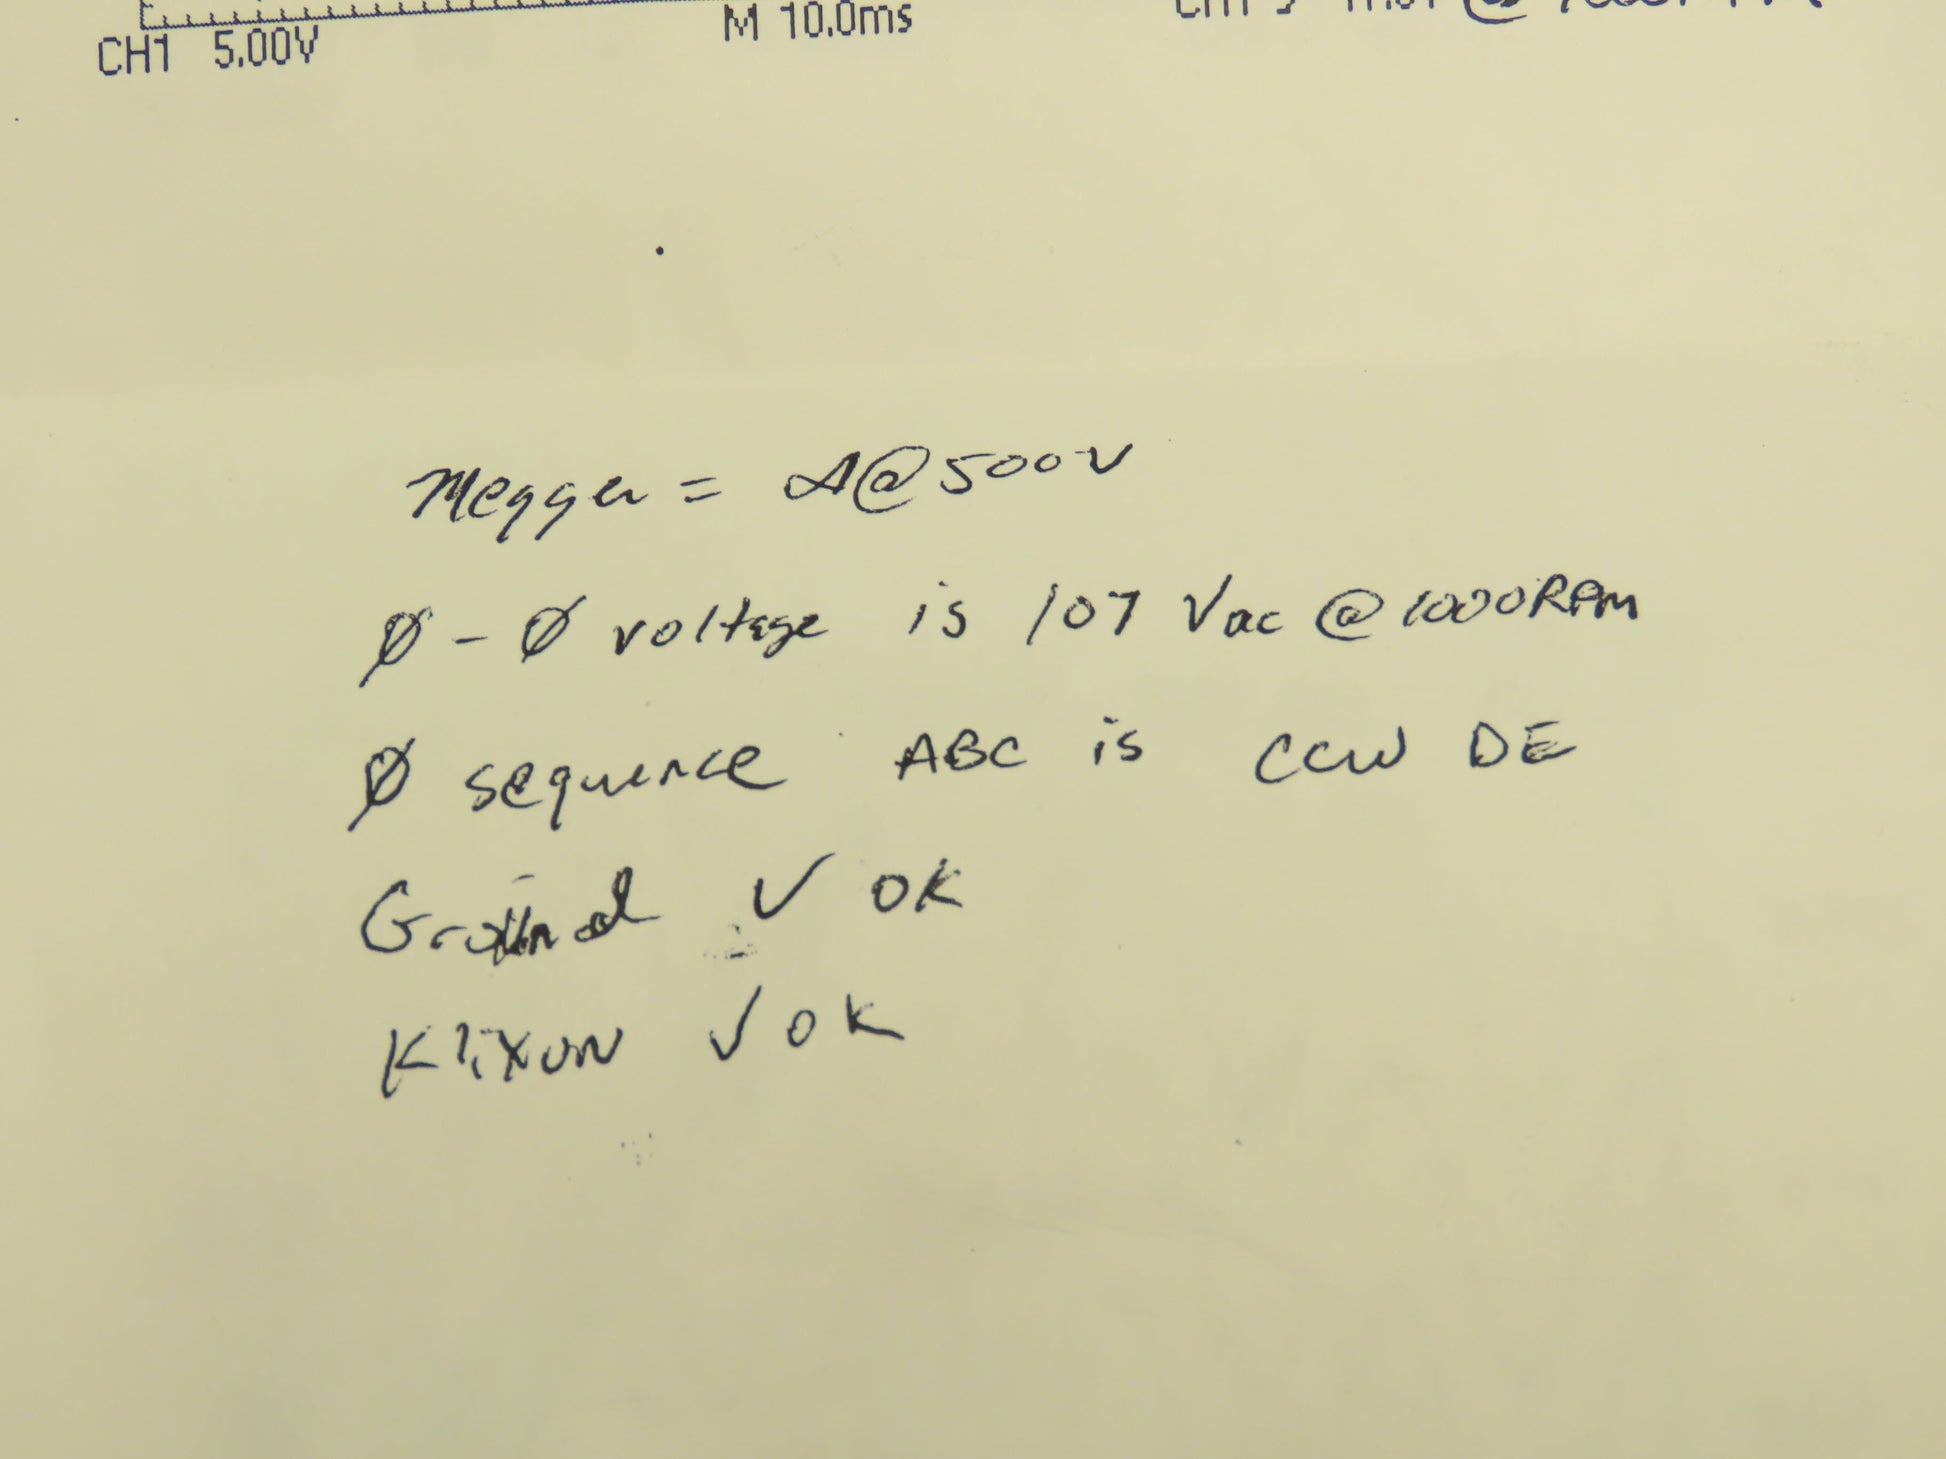 CH1 5.00V M 10.0ms CH1
Megger = @ 500V
Ø - Ø voltage is 107 Vac @ 1000RPM
Ø sequence ABC is CCW DE
Ground ✓ OK
Klixon ✓ OK